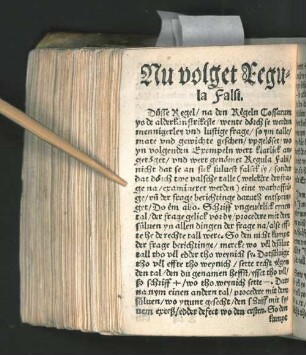 Nu volget Regu-
la Falsi.
Düsse Regel/ na den Regeln Cossarum
yo de alderkünstrikeste wente dörch se werden
mennigerley vnd lustige frage/ so ym talle/
mate vnd gewichte geschen/ vpgelöset/ wo
yn volgenden Exempeln wert klarlick an-
getöget/ vnd wert genömet Regula Falsi/
nicht dat se an sick sulvest falsck sy/ sonder
dat dörch twe valsche talle
ge na/ examineret werden) eine warhafti-
ge/ vn der frage berichtinge daruth entspro-
tal/ der frage gelick vordy/ procedere mit dem
süluen yn allen dingen der frage na/ alse eft
te he de rechte tall were. So den nicht kumpt
der frage berichtinge/ mercke wo vel düsse
tall tho vel edder tho weynich
tho vel effte tho weynich/ sette recht yegen
den tal/ den du genamen hefft/ ysset tho vel/
so schriff +/ wo tho weynich sette -. Dar
na nym einen andern tal/ procedere mit dem
süluen/ wo ytzunt gesecht/ den schriff mit sy
nem exceß/ edder defect wo den ersten. So den
kumpt